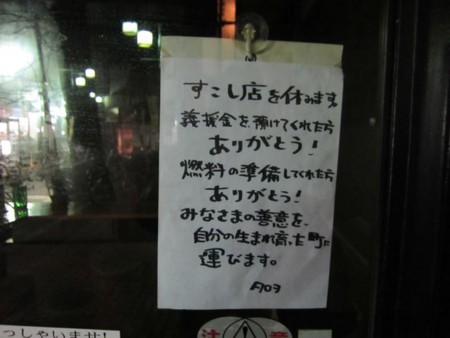 すこし店を休みます。
義援金を、預けてくれた方
ありがとう!
燃料の準備してくれた方
ありがとう!
みなさまの善意を、
自分の生まれ育った町に
運びます。
っしゃいませ!
注意